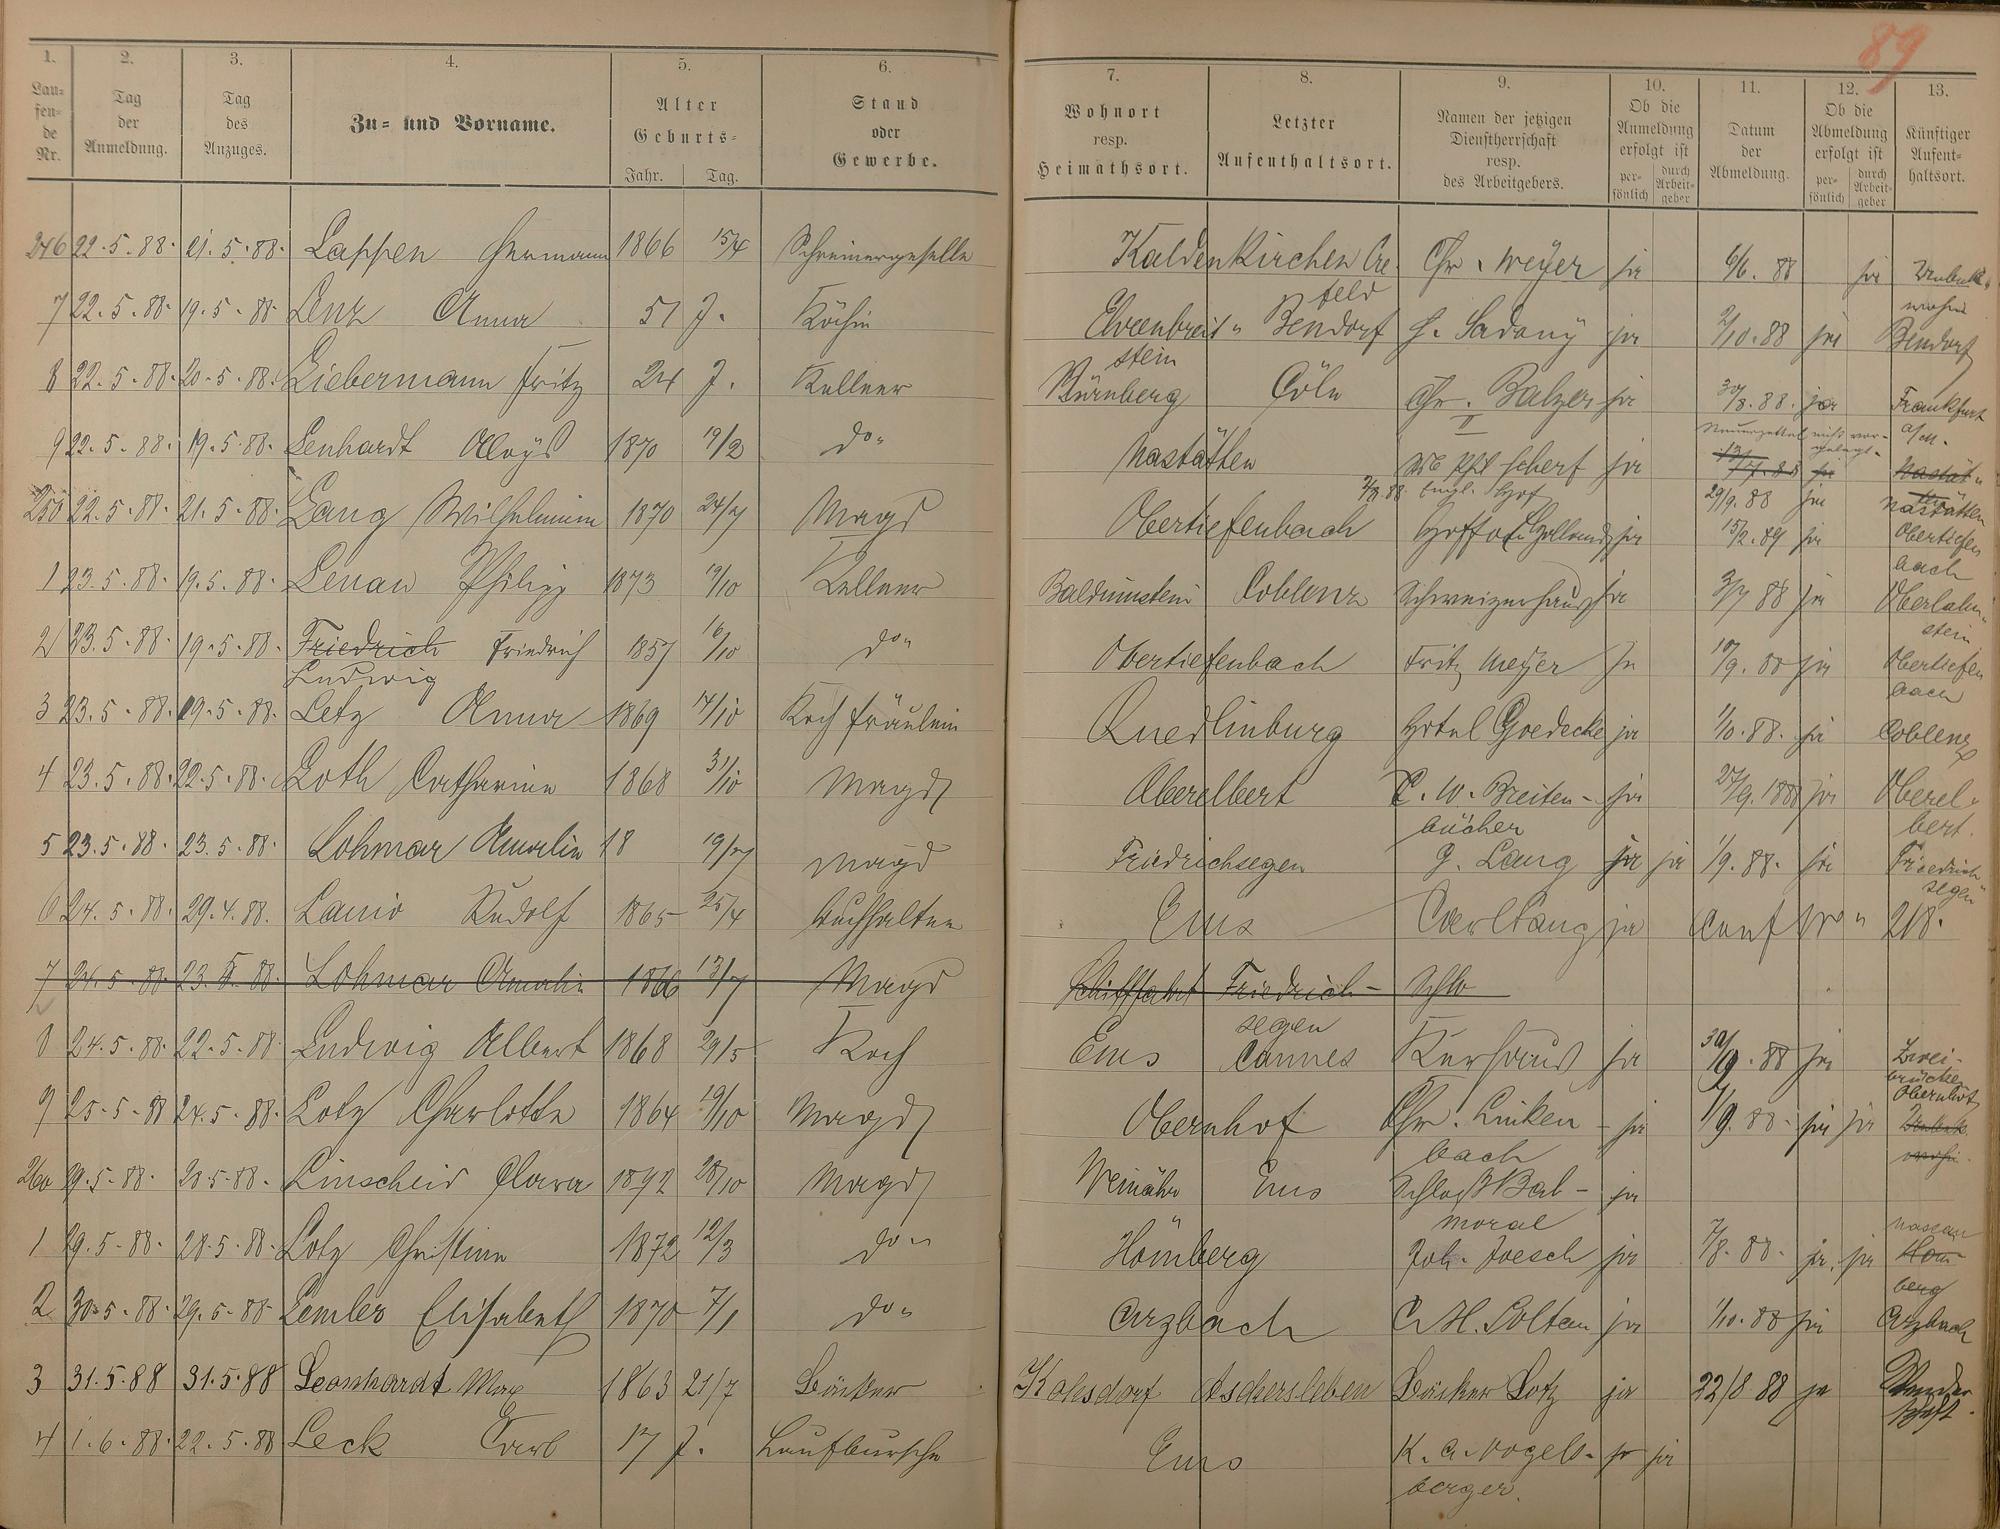 89
1. 2. 3. 4. 5. 6. 7. 8. 9. 10. 11. 12. 13.
Lau=
fen=
de
Nr.
Tag
der
Anmeldung.
Tag
des
Anzuges.
Zu= und Vorname.
Alter
Geburts=
Jahr. Tag.
Stand
oder
Gewerbe.
Wohnort
resp.
Heimathsort.
Letzter
Aufenthaltsort.
Namen der jetzigen
Dienstherrschaft
resp.
des Arbeitgebers.
Ob die
Anmeldung
erfolgt ist
per=
sönlich
durch
Arbeit=
geber
Datum
der
Abmeldung.
Ob die
Abmeldung
erfolgt ist
per=
sönlich
durch
Arbeit=
geber
Künftiger
Aufent=
haltsort.
246 22.5.88. 21.5.88. Lappen Hermann 1866 15/4 Schreinergeselle Kaldenkirchen Cre- Chr. Meyer ja 6/6. 88 ja Unbek.
feld wohin
7 22.5.88. 19.5.88. Lenz Anna 51 J. Köchin Ehrenbreit= Bendorf H. Sadony ja 2/10.88 ja Bendorf
stein
8 22.5.88. 20.5.88. Liebermann Fritz 24 J. Kellner Nürnberg Cöln Chr. Balzer ja 30/8.88. ja Frankfurt
II a/M.
9 22.5.88. 19.5.88. Lenhardt Aloys 1870 19/2 do. Nastätten Scherf ja
29/9.88 ja Nastätten
250 22.5.88. 21.5.88. Lang Wilhelmine 1870 24/7 Magd Obertiefenbach Hof v. Holland ja 15/2.89 ja Obertiefen
bach
1 23.5.88. 19.5.88. Lenau Philipp 1873 19/10 Kellner Balduinstein Coblenz Schweizerhaus ja 3/7 88 ja Oberlahn=
stein
2 23.5.88. 19.5.88. Friedrich Friedrich 1857 16/10 do. Obertiefenbach Fritz Meyer ja 10/9.88 ja Obertiefen
Ludwig bach
3 23.5.88. 19.5.88. Letz Anna 1869 14/10 Koch fräulein Quedlinburg Hotel Goedecke ja 1/10.88. ja Coblenz
4 23.5.88. 22.5.88. Loth Catharine 1868 31/10 Magd Oberelbert C. W. Breiten- ja 27/9.1888 ja Oberel=
bücher bert.
5 23.5.88. 23.5.88. Lohmar Amalie 18 19/7 Magd Friedrichsegen G. Lang ja ja 1/9.88. ja Friedrich=
segen
6 24.5.88. 29.4.88. Lanio Rudolf 1865 25/4 Buchhalter Ems Carl Lang ja 218.
7 24.5.88. 23.5.88. Lohmar Amalie 1866 13/7 Magd Schifffahrt Friedrich- Schlo
segen
8 24.5.88. 22.5.88. Ludwig Albert 1868 29/5 Koch Ems Cannes Kurhaus ja 30/9.88 ja Zwei-
brücken
9 25.5.88 24.5.88. Lotz Charlotte 1864 19/10 Magd Obernhof Chr. Linken- ja 1/9.88. ja ja Obernhof
bach
260 29.5.88. 28.5.88. Linscheid Clara 1892 28/10 Magd Weinähr Ems Schloß Bal- ja
moral
1 29.5.88. 28.5.88. Lotz Christine 1872 12/3 do. Hömberg Joh. Joesch ja 7/8.88. ja ja Nassau
Höm-
berg
2 30.5.88. 29.5.88. Lemler Elisabeth 1870 7/1 do. Arzbach C. H. Soltau ja 1/10.88 ja Arzbach
3 31.5.88 31.5.88 Leonhardt Max 1863 21/7 Bäcker Kohsdorf Aschersleben Bäcker Lotz ja 22/8 88 ja Wander
schaft.
4 1.6.88. 22.5.88 Leck Carl 17 J. Laufbursche Ems K. A. Vogels- ja ja
berger.